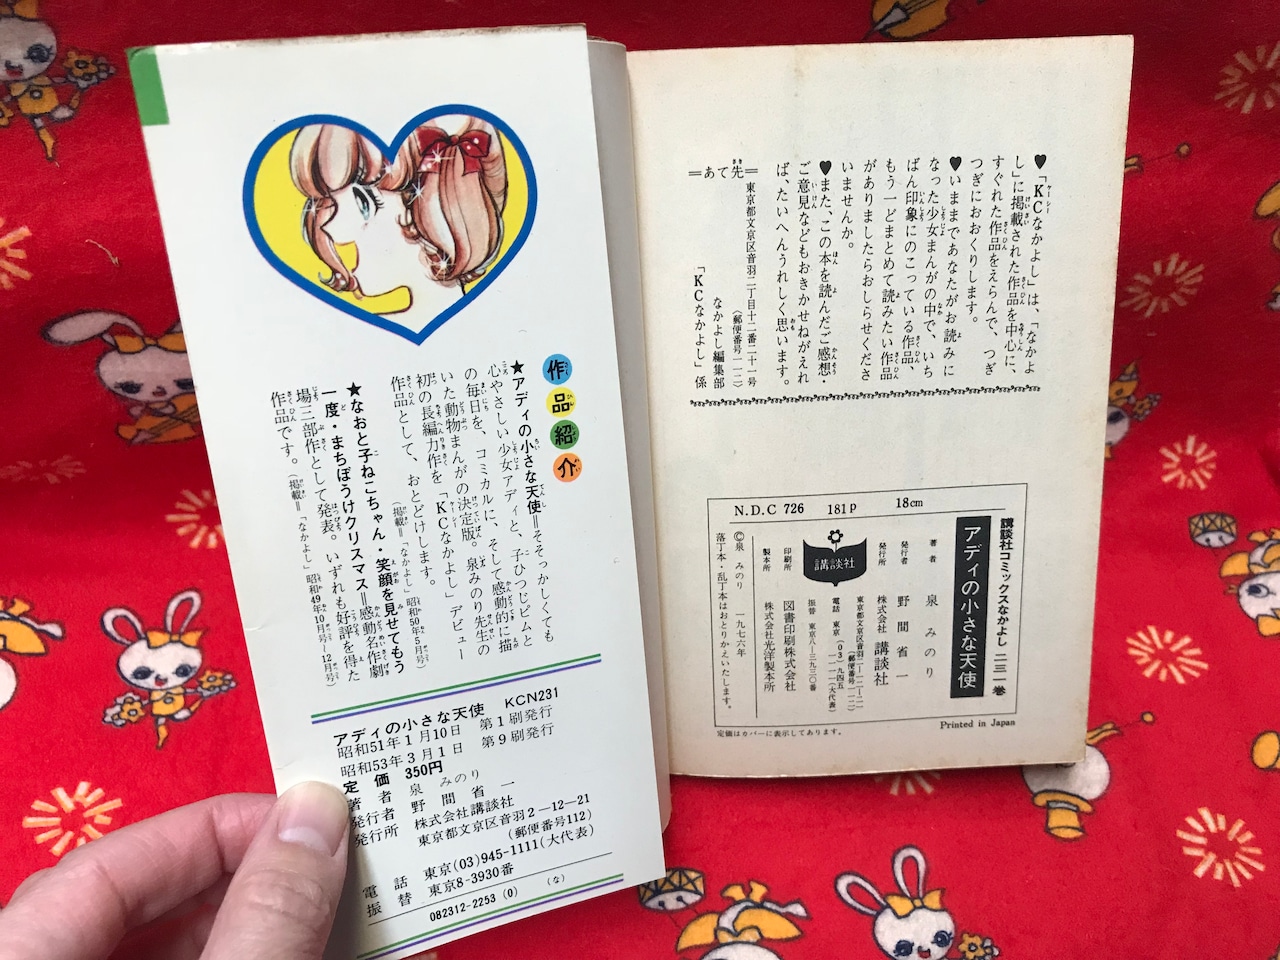 作品紹介
★アディの小さな天使＝そそっかしくても
心やさしい少女アディと、子ひつじピムと
の毎日を、コミカルに、そして感動的に描
いた動物まんがの決定版。泉みのり先生の
初の長編力作を「KCなかよし」デビュー
作品として、おとどけします。
（掲載＝「なかよし」昭和50年5月号）
★なおと子ねこちゃん・笑顔を見せてもう
一度・まちぼうけクリスマス＝感動名作劇
場三部作として発表。いずれも好評を得た
作品です。（掲載＝「なかよし」昭和49年10月号〜12月号）
アディの小さな天使 KCN231
昭和51年1月10日 第1刷発行
昭和53年3月1日 第9刷発行
定価 350円
著者 泉みのり
発行者 野間省一
発行所 株式会社講談社
東京都文京区音羽2-12-21
（郵便番号112）
電話 東京(03)945-1111(大代表)
振替 東京8-3930番
082312-2253(0) (な)
♥「KCなかよし」は、「なかよ
し」に掲載された作品を中心に、
すぐれた作品をえらんで、つぎ
つぎにおおくりします。
♥いままであなたがお読みに
なった少女まんがの中で、いち
ばん印象にのこっている作品、
もう一どまとめて読みたい作品
がありましたらおしらせくださ
いませんか。
♥また、この本を読んだご感想・
ご意見などもおきかせねがえれ
ば、たいへんうれしく思います。
＝あて先＝
東京都文京区音羽二丁目十二番二十一号
（郵便番号一一二）
なかよし編集部
「KCなかよし」係
N.D.C 726 181p 18cm
講談社コミックスなかよし 二三一巻
アディの小さな天使
著者 泉みのり
発行者 野間省一
発行所 株式会社 講談社
東京都文京区音羽二―一二―二一
（郵便番号一一二）
電話 東京（03）九四五
―一一一一（大代表）
振替 東京八―三九三〇番
講談社
印刷所 図書印刷株式会社
製本所 株式会社光洋製本所
©泉みのり 一九七六年
落丁本・乱丁本はおとりかえいたします。
Printed in Japan
定価はカバーに表示してあります。